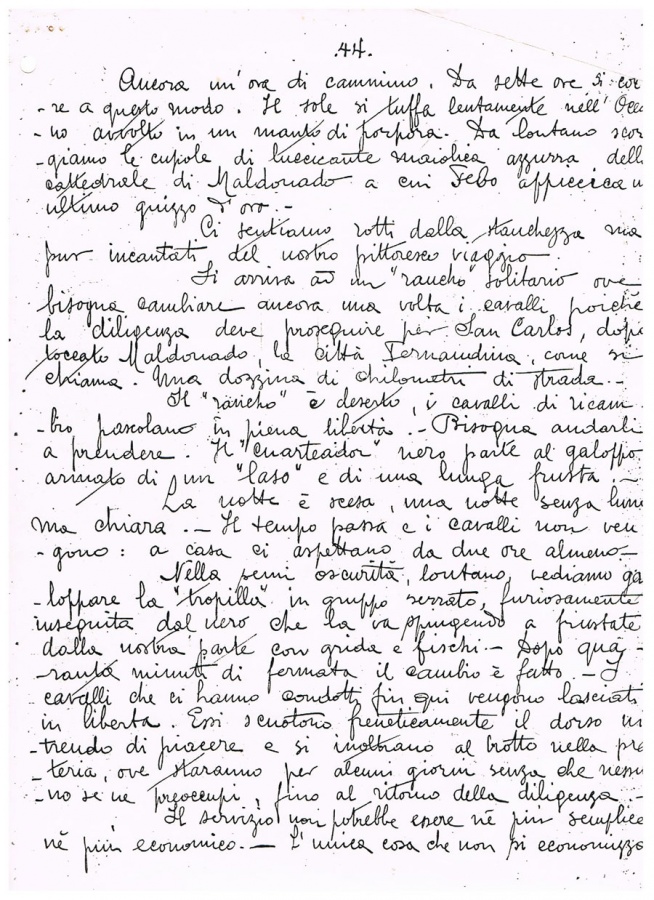 .44.
Ancora un'ora di cammino. Da sette ore si cor
-re a questo modo. Il sole si tuffa lentamente nell'Oce
-no avvolto in un manto di porpora. Da lontano scor
-giamo le cupole di luccicante maiolica azzurra dell
cattedrale di Maldonado a cui Febo appiccica u
ultimo guizzo d'oro.-
Ci sentiamo rotti dalla stanchezza ma
pur incantati del nostro pittoresco viaggio
Si arriva ad un "rancho" solitario ove
bisogna cambiare ancora una volta i cavalli, poichè
la diligenza deve proseguire per San Carlos, dopo
toccato Maldonado, la città Fernandina, come si
chiama. Una dozzina di chilometri di strada.-
Il "rancho" è deserto, i cavalli di ricam
-bio pascolano in piena libertà.- Bisogna andarli
a prendere. Il "cuarteador" nero parte al galoppo
armato di un "laso" e di una lunga frusta.-
La notte è scesa, una notte senza luna
ma chiara.- Il tempo passa e i cavalli non ven
-gono: a casa ci aspettano da due ore almeno.-
Nella semi oscurità, lontano, vediamo ga
-loppare la "tropilla" in gruppo serrato, furiosamente
inseguita dal nero che la va spingendo a frustate
dalla nostra parte con grida e fischi.- Dopo qua
-ranta minuti di fermata il cambio è fatto.- I
cavalli che ci hanno condotti fin qui vengono lasciati
in libertà. Essi scuotono freneticamente il dorso ni
-trendo di piacere e si inoltrano al trotto nella pra
-teria, ove staranno per alcuni giorni senza che nessu
-no se ne preoccupi, fino al ritorno della diligenza.-
Il servizio non potrebbe essere nè più semplice
nè più economico.- L'unica cosa che non si economizza